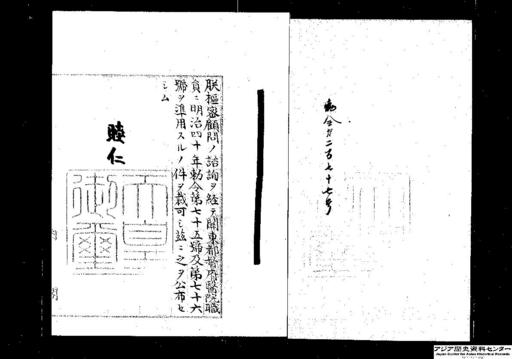 勅令第二百七十七号
朕樞密顧問ノ諮詢ヲ経テ関東都督府醫院職
員ニ明治四十年勅令第七十五號及第七十六
號ヲ準用スルノ件ヲ裁可シ玆ニ之ヲ公布セ
シム
睦仁
天皇御璽
内閣
アジア歴史資料センター
Japan Center for Asian Historical Records